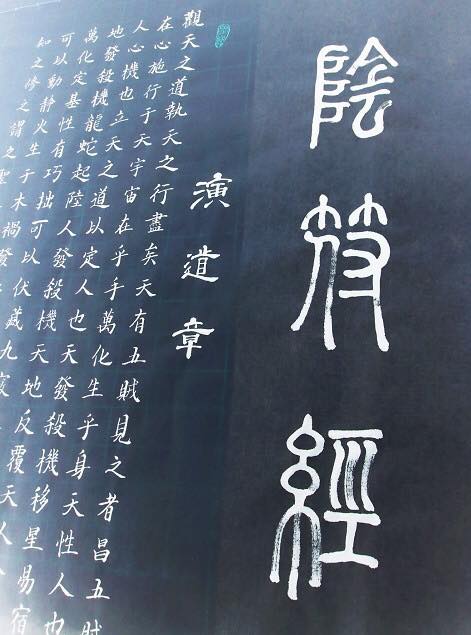 陰符經
演道章
觀天之道執天之行盡矣天有五賊見之者昌五賊
在心施行于天宇宙在乎手萬化生乎身天性人也
人心機也立天之道以定人也天發殺機移星易宿
地發殺機龍蛇起陸人發殺機天地反覆天人
萬化定基性有巧拙可以伏藏九竅
可以動靜火生于木禍發
知之修之謂之聖